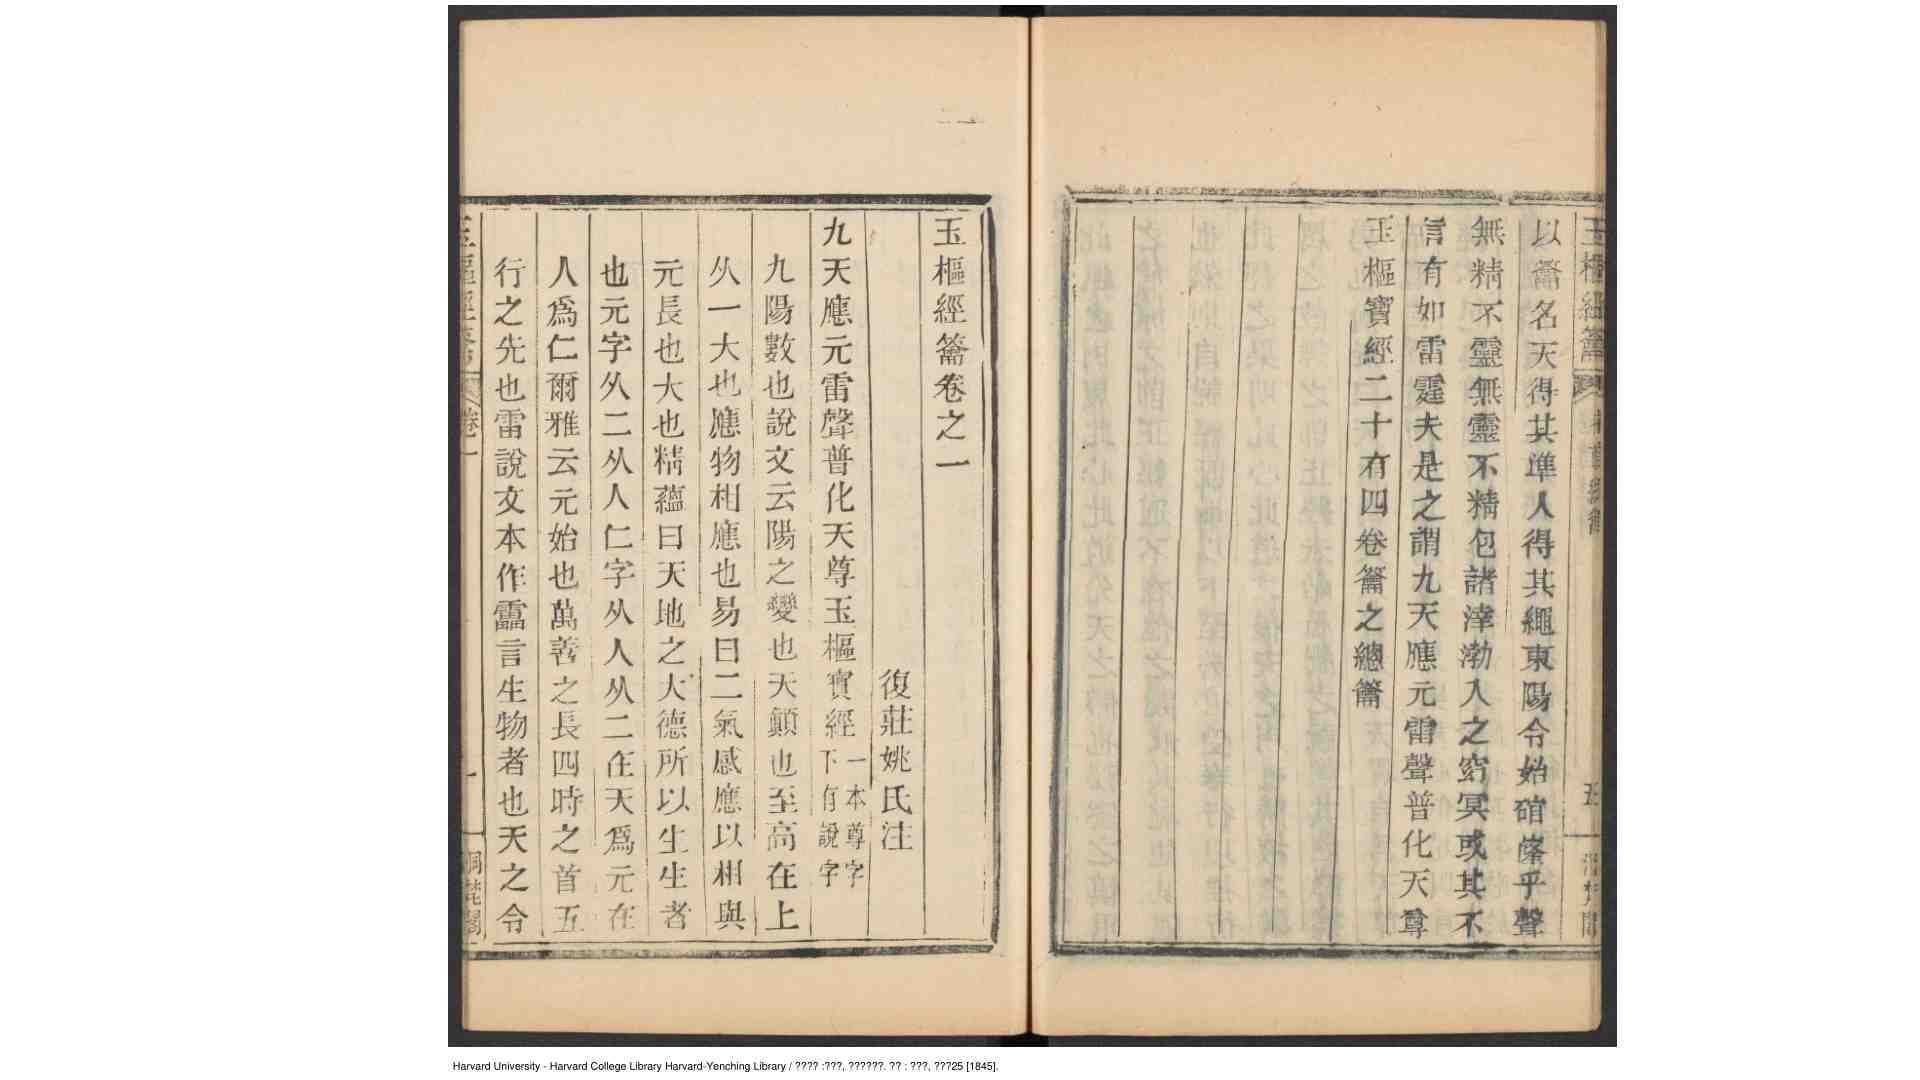 以籥名天得其準人得其繩東陽令始䃔窿乎聲
無精不靈無靈不精包諸滓渤入之窈冥或其不
信有如雷霆夫是之謂九天應元雷聲普化天尊
玉樞寶經二十有四卷籥之總籥
玉樞經籥卷之一
復莊姚氏注
九天應元雷聲普化天尊玉樞寶經一本尊字下有說字
九陽數也說文云陽之變也天顚也至高在上
从一大也應物相應也易曰二氣感應以相與
元長也大也精蘊曰天地之大德所以生生者
也元字从二从人仁字从人从二在天爲元在
人爲仁爾雅云元始也萬善之長四時之首五
行之先也雷說文本作靁言生物者也天之令
卷一
Harvard University - Harvard College Library Harvard-Yenching Library / ???? :???, ??????. ?? : ???, ???25 [1845].